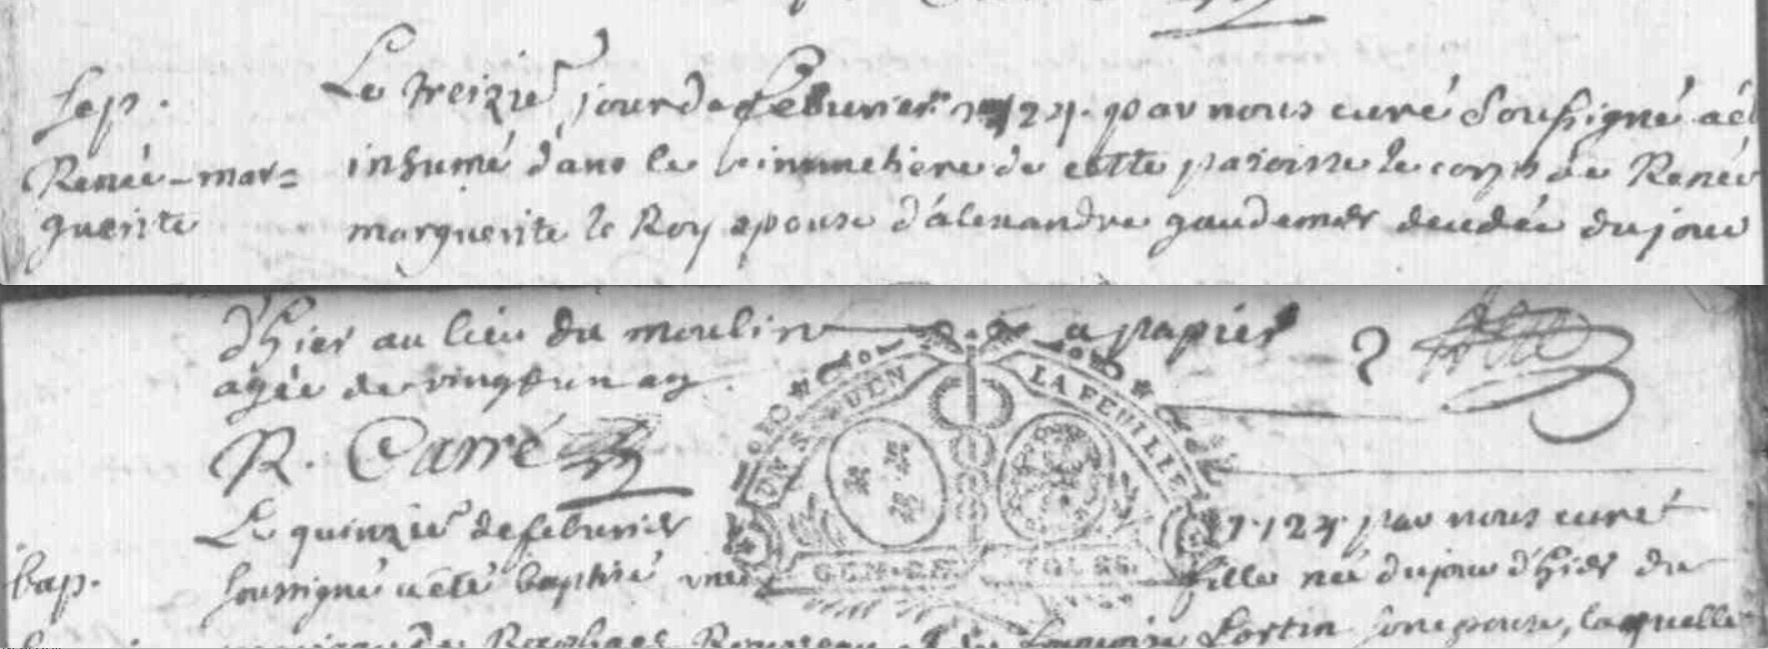 Sep.
Renée-mar=
guerite
Le treizie jour de febuvrier 1724. par nous curé Soussigné a él
inhumé dans le cimmetiere de cette paroisse le corps de Renée
marguerite le Roy epouse d'alexandre gaudemer decedée du jour
d'hier au lieu du moulin a papier
agée de vingt un an.
R. Carré
UN S QUEN
LA FEUILLE
GEN. DE TOURS
Le quinzie de febuvrier 1724 par nous curé
bap.
soussigné a été baptisé une fille née du jour d'hier du
Rousseau et de Fortin son epouse, laquelle